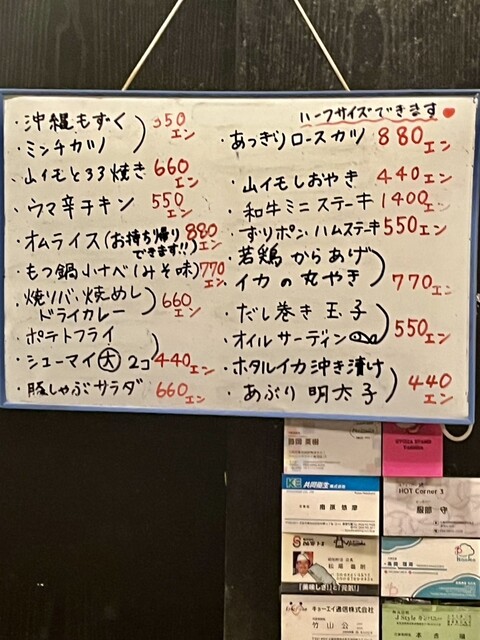 ・沖縄もずく
・ミンチカツ
350エン
・山イモとろろ焼き 660エン
・ウマ辛チキン 550エン
・オムライス(お持ち帰りできます!!) 880エン
・もつ鍋小ナベ(みそ味) 770エン
・焼ソバ・焼めし
ドライカレー
660エン
・ポテトフライ
・シューマイ大 2コ
440エン
・豚しゃぶサラダ 660エン
ハーフサイズできます
・あっさりロースカツ 880エン
・山イモしおやき 440エン
・和牛ミニステーキ 1400エン
・ずりポン・ハムステーキ 550エン
・若鶏からあげ
・イカの丸やき
770エン
・だし巻き玉子
・オイルサーディン
550エン
・ホタルイカ沖き漬け
・あぶり明太子
440エン
GYOZA STAND
KE 共同衛生株式会社
HOT Corner 3
服部 守
松尾
「美味しさ」と「元気」!
キョーエイ通信株式会社
竹山 公二
J Style